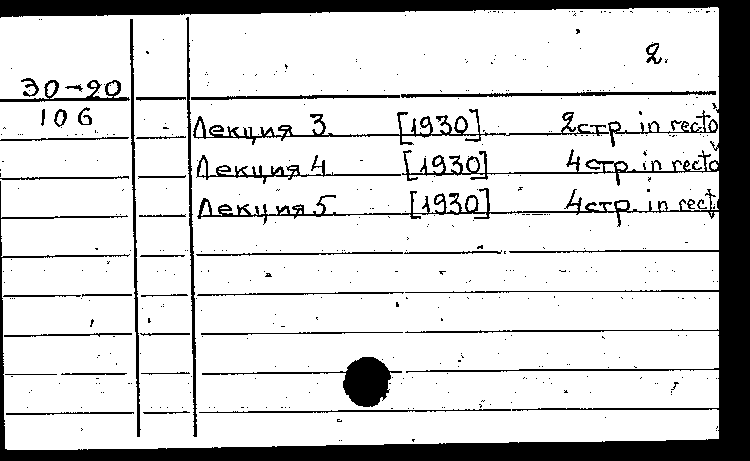 2.
30-20
106
Лекция 3. [1930]. 2стр. in recto
Лекция 4 [1930] 4стр. in recto
Лекция 5. [1930] 4стр. in recto